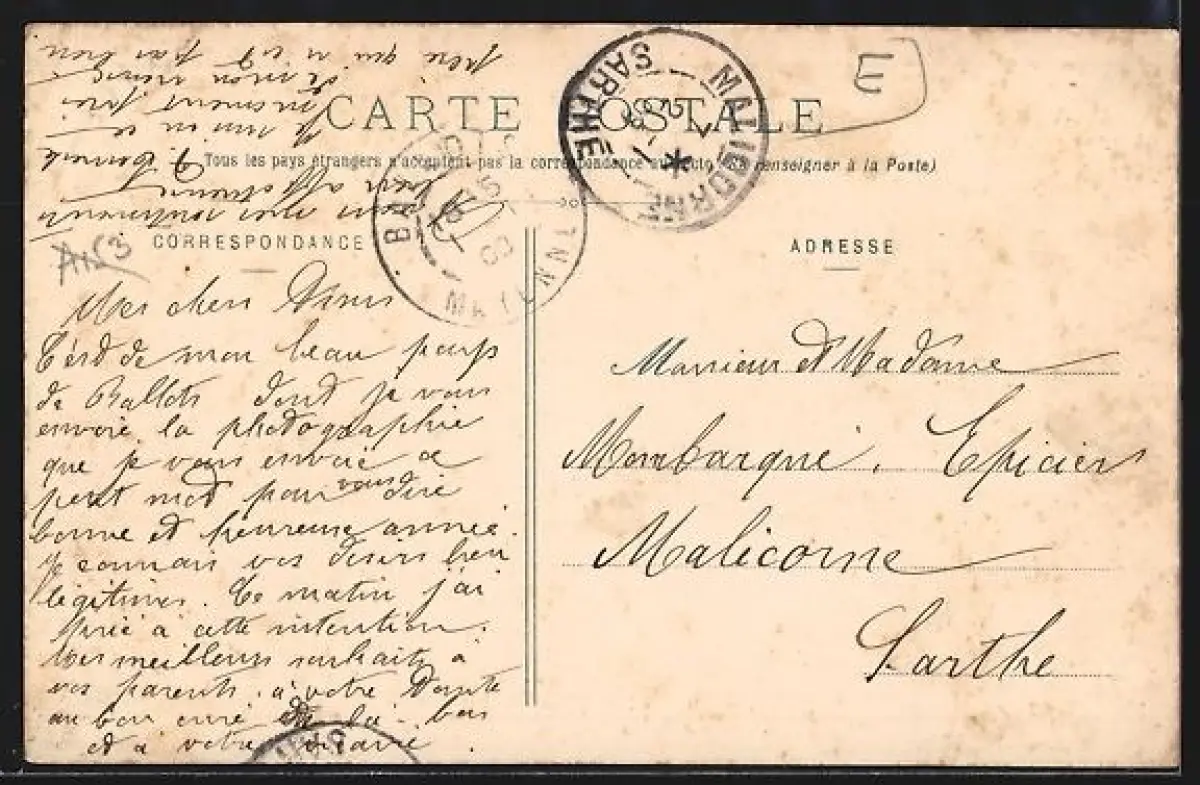 CARTE POSTALE
Tous les pays étrangers n'acceptent pas la correspondance au recto (Se renseigner à la Poste)
CORRESPONDANCE
ADRESSE
E
MALICORNE
SARTHE
Mes chers Amis
C'est de mon beau pays
de Ballots dont je vous
envoie la photographie
que je vous envoie ce
petit mot pour vous dire
bonne et heureuse année.
Je connais vos désirs bien
légitimes. Ce matin j'ai
prié à cette intention.
Mes meilleurs souhaits à
vos parents, à votre
au bon curé de là-bas
et à votre
bien affectueux
Je suis ici
de mon
père qui n'est pas bien
Monsieur et Madame
Mombarqué, Epiciers
Malicorne
Sarthe